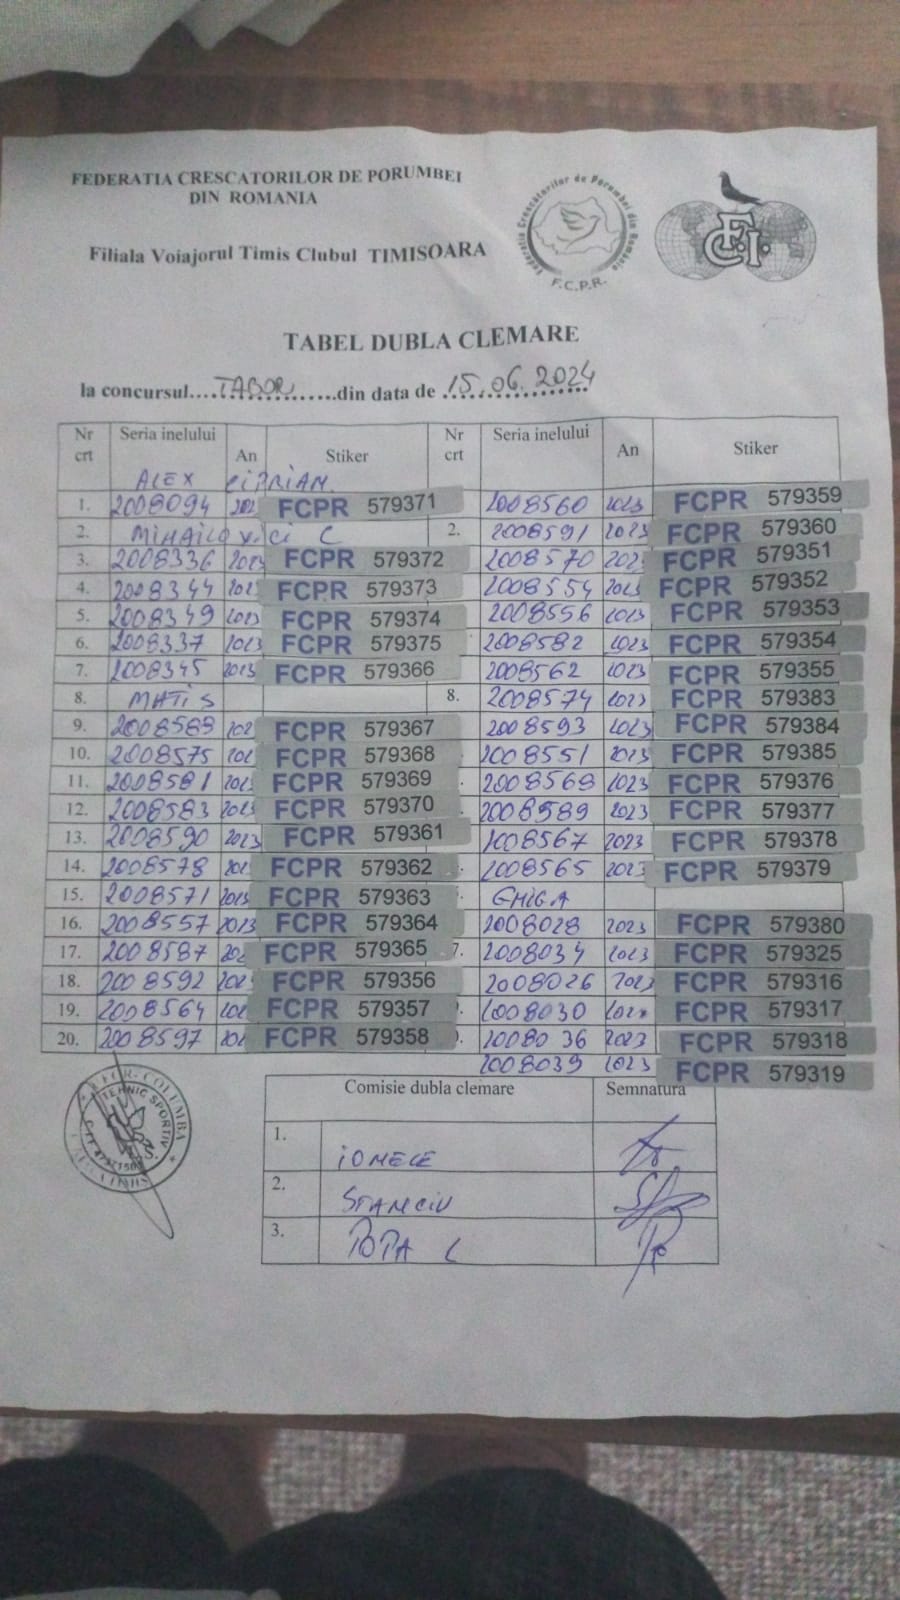 FEDERATIA CRESCATORILOR DE PORUMBEI
DIN ROMANIA
Filiala Voiajorul Timis Clubul TIMISOARA
Federatia Crescătorilor de Porumbei din România
F.C.P.R.
F.C.I.
TABEL DUBLA CLEMARE
la concursul....TABOR.................din data de 15.06.2024
Nr crt Seria inelului An Stiker Nr crt Seria inelului An Stiker
ALEX CIPRIAN
1. 2008094 FCPR 579371 2008560 2023 FCPR 579359
2. MIHAILOVICI C 2. 2008591 2023 FCPR 579360
3. 2008336 2023 FCPR 579372 2008570 2023 FCPR 579351
4. 2008344 2023 FCPR 579373 2008554 2023 FCPR 579352
5. 2008349 2023 FCPR 579374 2008556 2023 FCPR 579353
6. 2008337 2023 FCPR 579375 2008582 2023 FCPR 579354
7. 2008345 2023 FCPR 579366 2008562 2023 FCPR 579355
8. MATIS 8. 2008574 2023 FCPR 579383
9. 2008588 202 FCPR 579367 2008593 2023 FCPR 579384
10. 2008575 202 FCPR 579368 2008551 2023 FCPR 579385
11. 2008581 2023 FCPR 579369 2008568 2023 FCPR 579376
12. 2008583 2023 FCPR 579370 2008589 2023 FCPR 579377
13. 2008590 2023 FCPR 579361 2008567 2023 FCPR 579378
14. 2008578 202 FCPR 579362 2008565 2023 FCPR 579379
15. 2008571 2023 FCPR 579363 GHIGA
16. 2008557 2023 FCPR 579364 2008028 2023 FCPR 579380
17. 2008587 202 FCPR 579365 7. 2008034 2023 FCPR 579325
18. 2008592 2023 FCPR 579356 2008026 2023 FCPR 579316
19. 2008564 202 FCPR 579357 2008030 202 FCPR 579317
20. 2008597 202 FCPR 579358 2008036 2023 FCPR 579318
2008039 2023 FCPR 579319
Comisie dubla clemare Semnatura
1. IONELE
2. STANCIU
3. POPA C
COLUMBA
TEHNIC SPORTIV
TIMIS